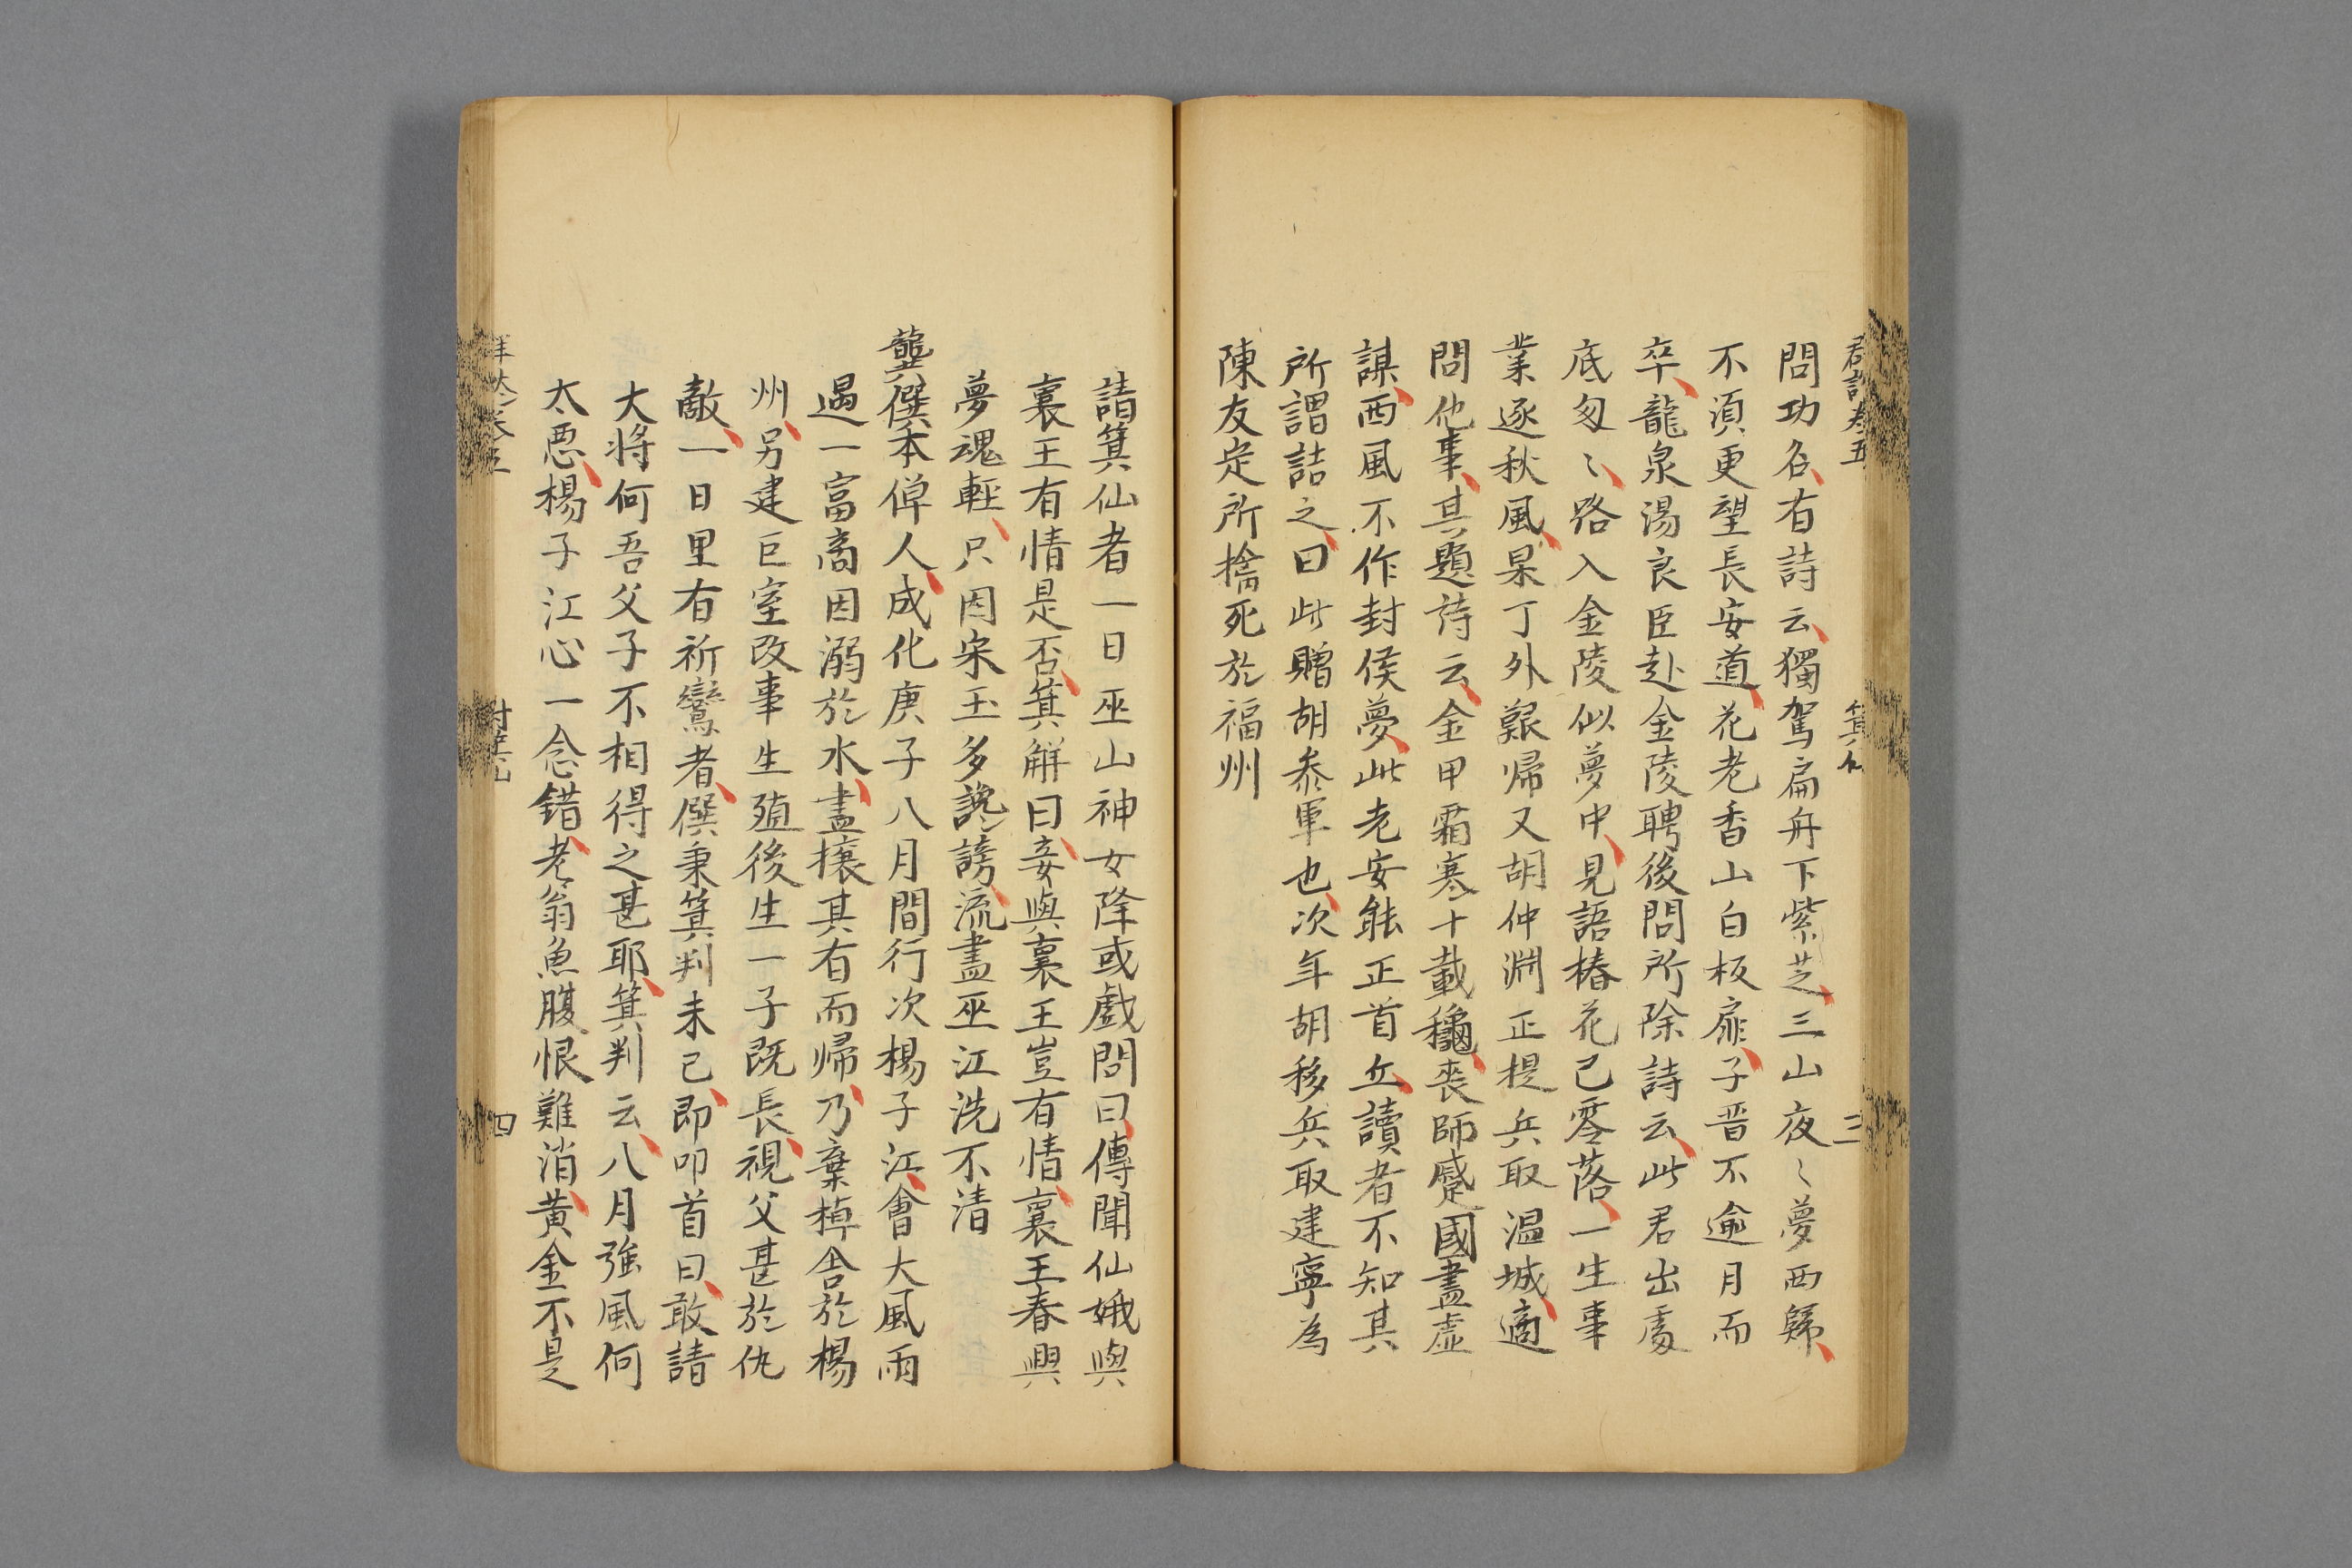 問功名有詩云獨駕扁舟下紫芝三山夜〻夢西歸
不須更望長安道花老香山白板扉子晉不逾月而
卒龍泉湯良臣赴金陵聘後問所除詩云此君出處
底匆〻路入金陵似夢中見語椿花已零落一生事
業逐秋風果丁外艱歸又胡仲淵正提兵取温城適
問他事其題詩云金甲霜寒十載穐喪師蹙國盡虛
謀西風不作封侯夢此老安能正首丘讀者不知其
所謂詰之曰此贈胡叅軍也次年胡移兵取建寧為
陳友定所擒死於福州
請箕仙者一日巫山神女降或戲問曰傳聞仙娥與
襄王有情是否箕解曰妾與襄王豈有情襄王春興
夢魂輕只因宋玉多讒謗流盡巫江洗不清
龔僎本倬人成化庚子八月間行次楊子江會大風雨
遇一富商因溺於水盡攘其有而歸乃棄棹舍於楊
州另建巨室改事生殖後生一子既長視父甚於仇
敵一日里有祈鸞者僎秉箕判未已即叩首曰敢請
大将何吾父子不相得之甚耶箕判云八月強風何
太惡楊子江心一念錯老翁魚腹恨難消黄金不是
卷五
箕仙
三
四